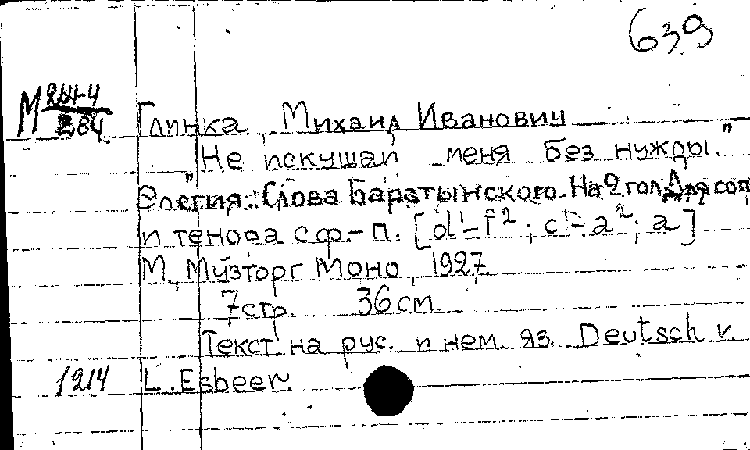 639
М 261-4
Глинка, Михаил Иванович
"Не искушай меня без нужды."
Элегия. Слова Баратынского. На 2 гол. Для соп
и тенора с ф.-п.
М., Музторг Моно, 1927
7 стр. 36 см
Текст на рус. и нем. яз. Deutsch v.
1214 L. Esbeer.